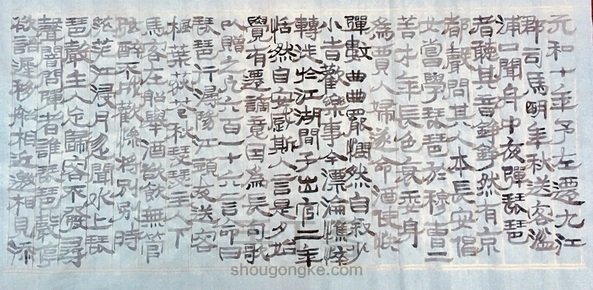 元和十年予左遷九江
郡司馬明年秋送客湓
浦口聞舟中夜彈琵琶
者聽其音錚錚然有京
都聲問其人本長安倡
女嘗學琵琶於穆曹二
善才年長色衰委身
為賈人婦遂命酒使快
彈數曲曲罷憫然自敘少
小時歡樂事今漂淪憔悴
轉徙於江湖間予出官二年
恬然自安感斯人言是夕始
覺有遷謫意因為長句歌
以贈之凡六百一十六言命曰
琵琶行潯陽江頭夜送客
楓葉荻花秋瑟瑟主人下
馬客在船舉酒欲飲無管
絃醉不成歡慘將別別時
茫茫江浸月忽聞水上琵
琶聲主人忘歸客不發尋
聲闇問彈者誰琵琶聲停
欲語遲移船相近邀相見添
shougongke.com